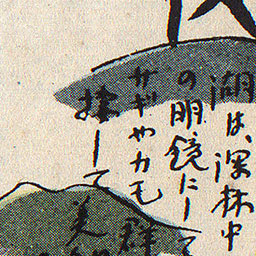 湖は、深林中
の明鏡にして
サギやカモ群
棲して美